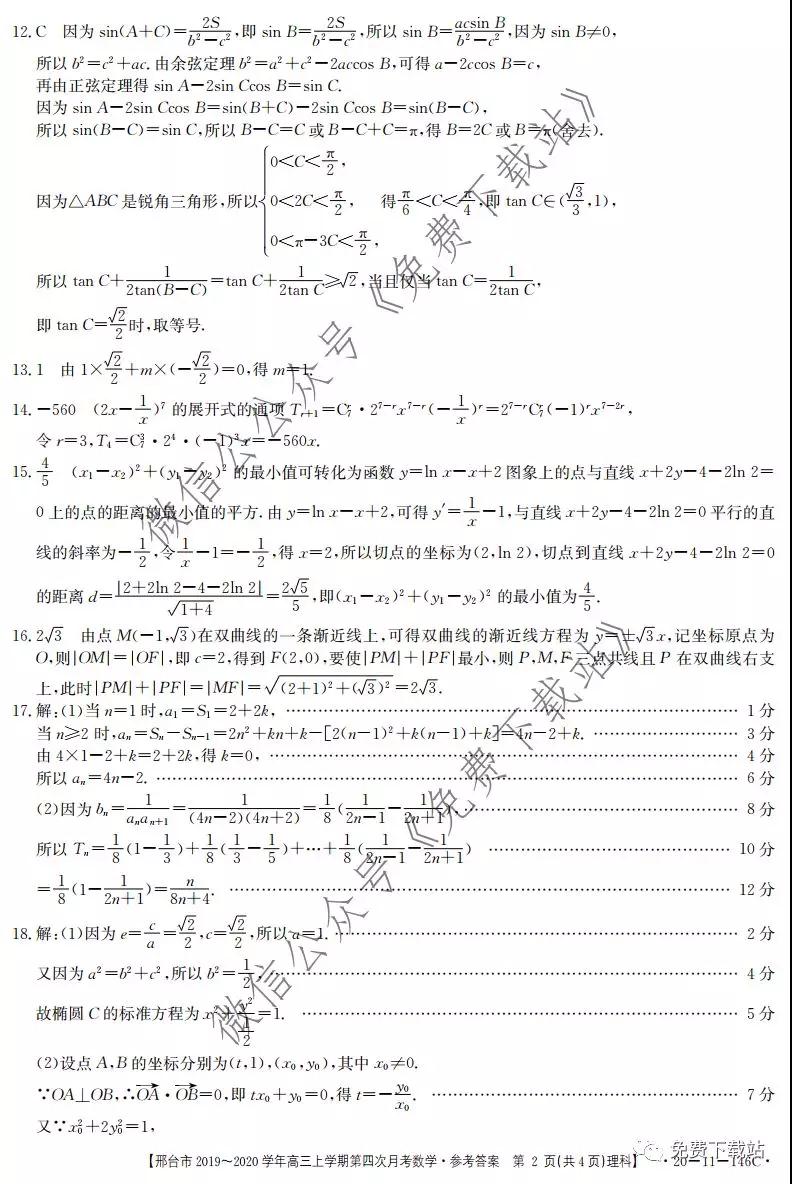 12.C 因为 sin(A+C)=2S/(b²-c²),即 sin B=2S/(b²-c²),所以 sin B=acsin B/(b²-c²),因为 sin B≠0,
所以 b²=c²+ac. 由余弦定理 b²=a²+c²-2accos B,可得 a-2ccos B=c,
再由正弦定理得 sin A-2sin Ccos B=sin C.
因为 sin A-2sin Ccos B=sin(B+C)-2sin Ccos B=sin(B-C),
所以 sin(B-C)=sin C,所以 B-C=C 或 B-C+C=π,得 B=2C 或 B=π(舍去).
因为△ABC 是锐角三角形,所以{0<C<π/2, 0<2C<π/2, 0<π-3C<π/2, 得 π/6<C<π/4,即 tan C∈(√3/3,1),
所以 tan C+1/(2tan(B-C))=tan C+1/(2tan C)≥√2,当且仅当 tan C=1/(2tan C),
即 tan C=√2/2 时,取等号.
13.1 由 1×√2/2+m×(-√2/2)=0,得 m=1.
14.-560 (2x-1/x)⁷ 的展开式的通项 Tᵣ₊₁=C₇ʳ·2⁷⁻ʳx⁷⁻ʳ(-1/x)ʳ=2⁷⁻ʳC₇ʳ(-1)ʳx⁷⁻²ʳ,
令 r=3,T₄=C₇³·2⁴·(-1)³x=-560x.
15.4/5 (x₁-x₂)²+(y₁-y₂)² 的最小值可转化为函数 y=ln x-x+2 图象上的点与直线 x+2y-4-2ln 2=
0 上的点的距离的最小值的平方. 由 y=ln x-x+2,可得 y′=1/x-1,与直线 x+2y-4-2ln 2=0 平行的直
线的斜率为-1/2,令 1/x-1=-1/2,得 x=2,所以切点的坐标为(2,ln 2),切点到直线 x+2y-4-2ln 2=0
的距离 d=|2+2ln 2-4-2ln 2|/√(1+4)=2√5/5,即(x₁-x₂)²+(y₁-y₂)² 的最小值为 4/5.
16.2√3 由点 M(-1,√3)在双曲线的一条渐近线上,可得双曲线的渐近线方程为 y=±√3x,记坐标原点为
O,则|OM|=|OF|,即 c=2,得到 F(2,0),要使|PM|+|PF|最小,则 P,M,F 三点共线且 P 在双曲线右支
上,此时|PM|+|PF|=|MF|=√((2+1)²+(√3)²)=2√3.
17.解:(1)当 n=1 时,a₁=S₁=2+2k, …… 1 分
当 n≥2 时,aₙ=Sₙ-Sₙ₋₁=2n²+kn+k-[2(n-1)²+k(n-1)+k]=4n-2+k. …… 3 分
由 4×1-2+k=2+2k,得 k=0, …… 4 分
所以 aₙ=4n-2. …… 6 分
(2)因为 bₙ=1/(aₙaₙ₊₁)=1/((4n-2)(4n+2))=1/8(1/(2n-1)-1/(2n+1)), …… 8 分
所以 Tₙ=1/8(1-1/3)+1/8(1/3-1/5)+…+1/8(1/(2n-1)-1/(2n+1)) …… 10 分
=1/8(1-1/(2n+1))=n/(8n+4). …… 12 分
18.解:(1)因为 e=c/a=√2/2,c=√2/2,所以 a=1. …… 2 分
又因为 a²=b²+c²,所以 b²=1/2, …… 4 分
故椭圆 C 的标准方程为 x²+y²/(1/2)=1. …… 5 分
(2)设点 A,B 的坐标分别为(t,1),(x₀,y₀),其中 x₀≠0.
∵OA⊥OB,∴OA·OB=0,即 tx₀+y₀=0,得 t=-y₀/x₀. …… 7 分
又∵x₀²+2y₀²=1,
【邢台市 2019~2020 学年高三上学期第四次月考数学·参考答案 第 2 页(共 4 页)理科】 ·20-11-146C·
微信公众号《免费下载站》
微信公众号《免费下载站》
免费下载站